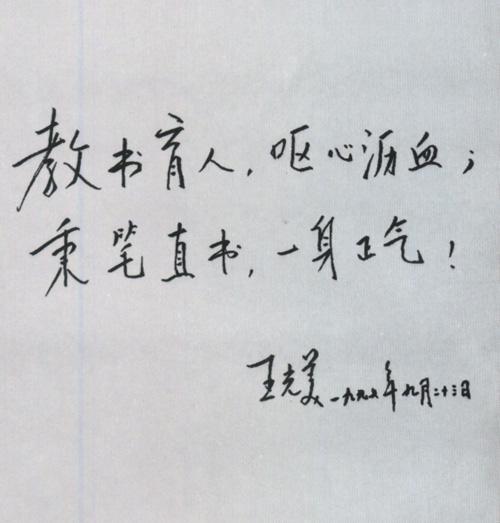 教书育人，呕心沥血；
秉笔直书，一身正气！
王光美 一九九六年九月二十三日